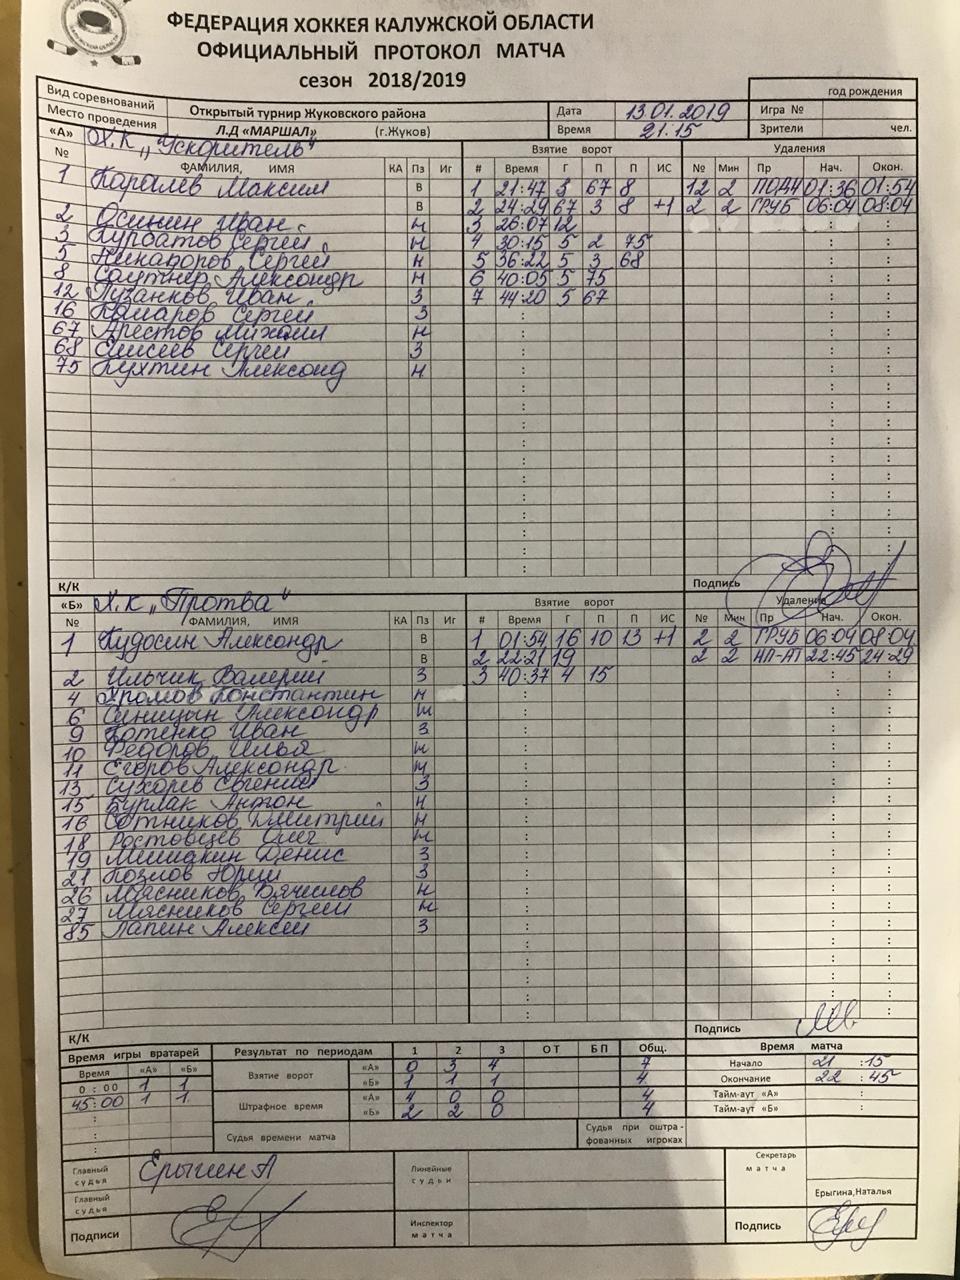 ФЕДЕРАЦИЯ ХОККЕЯ КАЛУЖСКОЙ ОБЛАСТИ
ОФИЦИАЛЬНЫЙ ПРОТОКОЛ МАТЧА
сезон 2018/2019
год рождения
Вид соревнований Открытый турнир Жуковского района Дата 13.01.2019 Игра №
Место проведения Л.Д «МАРШАЛ» (г.Жуков) Время 21:15 Зрители чел.
«А» Х.К „Ускоритель" Взятие ворот Удаления
№ ФАМИЛИЯ, ИМЯ КА Пз Иг # Время Г П П ИС № Мин Пр Нач. Окон.
1 Каралев Максим В 1 21:47 3 67 8 12 2 ПОДН 01:36 01:54
В 2 24:29 67 3 8 +1 2 2 ГРУБ 06:04 08:04
2 Осинин Иван Н 3 26:07 12 :
3 Курбатов Сергей Н 4 30:15 5 2 75
5 Никаноров Сергей Н 5 36:22 5 3 68
8 Саутнер Александр Н 6 40:05 5 75
12 Пузанков Иван З 7 44:20 5 67
16 Комаров Сергей З
67 Арестов Михаил Н
68 Елисеев Сергей З
75 Кухтин Александ Н
К/К Подпись
«Б» Х.К „Протва" Взятие ворот Удаления
№ ФАМИЛИЯ, ИМЯ КА Пз Иг # Время Г П П ИС № Мин Пр Нач. Окон.
1 Кудосин Александр В 1 01:54 16 10 13 +1 2 2 ГРУБ 06:04 08:04
В 2 22:21 19 2 2 НП-АТ 22:45 24:29
2 Ильчик Валерий З 3 40:37 4 15
4 Хромов Константин Н
6 Синицын Александр Н
9 Котенко Иван З
10 Федоров Илья Н
11 Егоров Александр Н
13 Сухорев Евгений З
15 Бурлак Антон Н
16 Сотников Дмитрий Н
18 Ростовцев Олег Н
19 Мишакин Денис З
21 Козлов Юрий З
26 Мясников Вячеслав Н
27 Мясников Сергей Н
85 Лапин Алексей З
К/К Подпись
Время игры вратарей Результат по периодам 1 2 3 ОТ БП Общ. Время матча
Время «А» «Б» Взятие ворот «А» 0 3 4 7 Начало 21 :15
0 : 00 1 1 «Б» 1 1 1 4 Окончание 22 : 45
45:00 1 1 Штрафное время «А» 4 0 0 4 Тайм-аут «А» :
«Б» 2 2 0 4 Тайм-аут «Б» :
Судья времени матча Судья при оштрафованных игроках
Главный судья Ерыгин А Линейные судьи Секретарь матча
Главный судья Ерыгина,Наталья
Подписи Инспектор матча Подпись